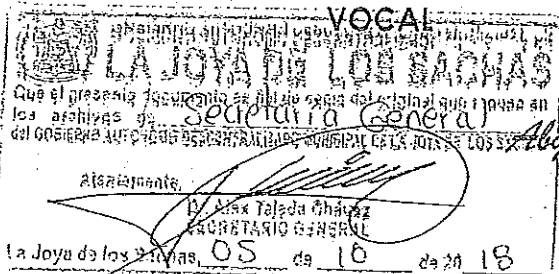 VOCAL
LA JOYA DE LOS SACHAS
Que el presente documento es fiel copia del original que reposa en
los archivos de Secretaria General
del GOBIERNO AUTONOMO DESCENTRALIZADO MUNICIPAL DE LA JOYA DE LOS Ab
Atentamente,
Alex Tejada Chávez
SECRETARIO GENERAL
La Joya de los Sachas, 05 de 10 de 20 18